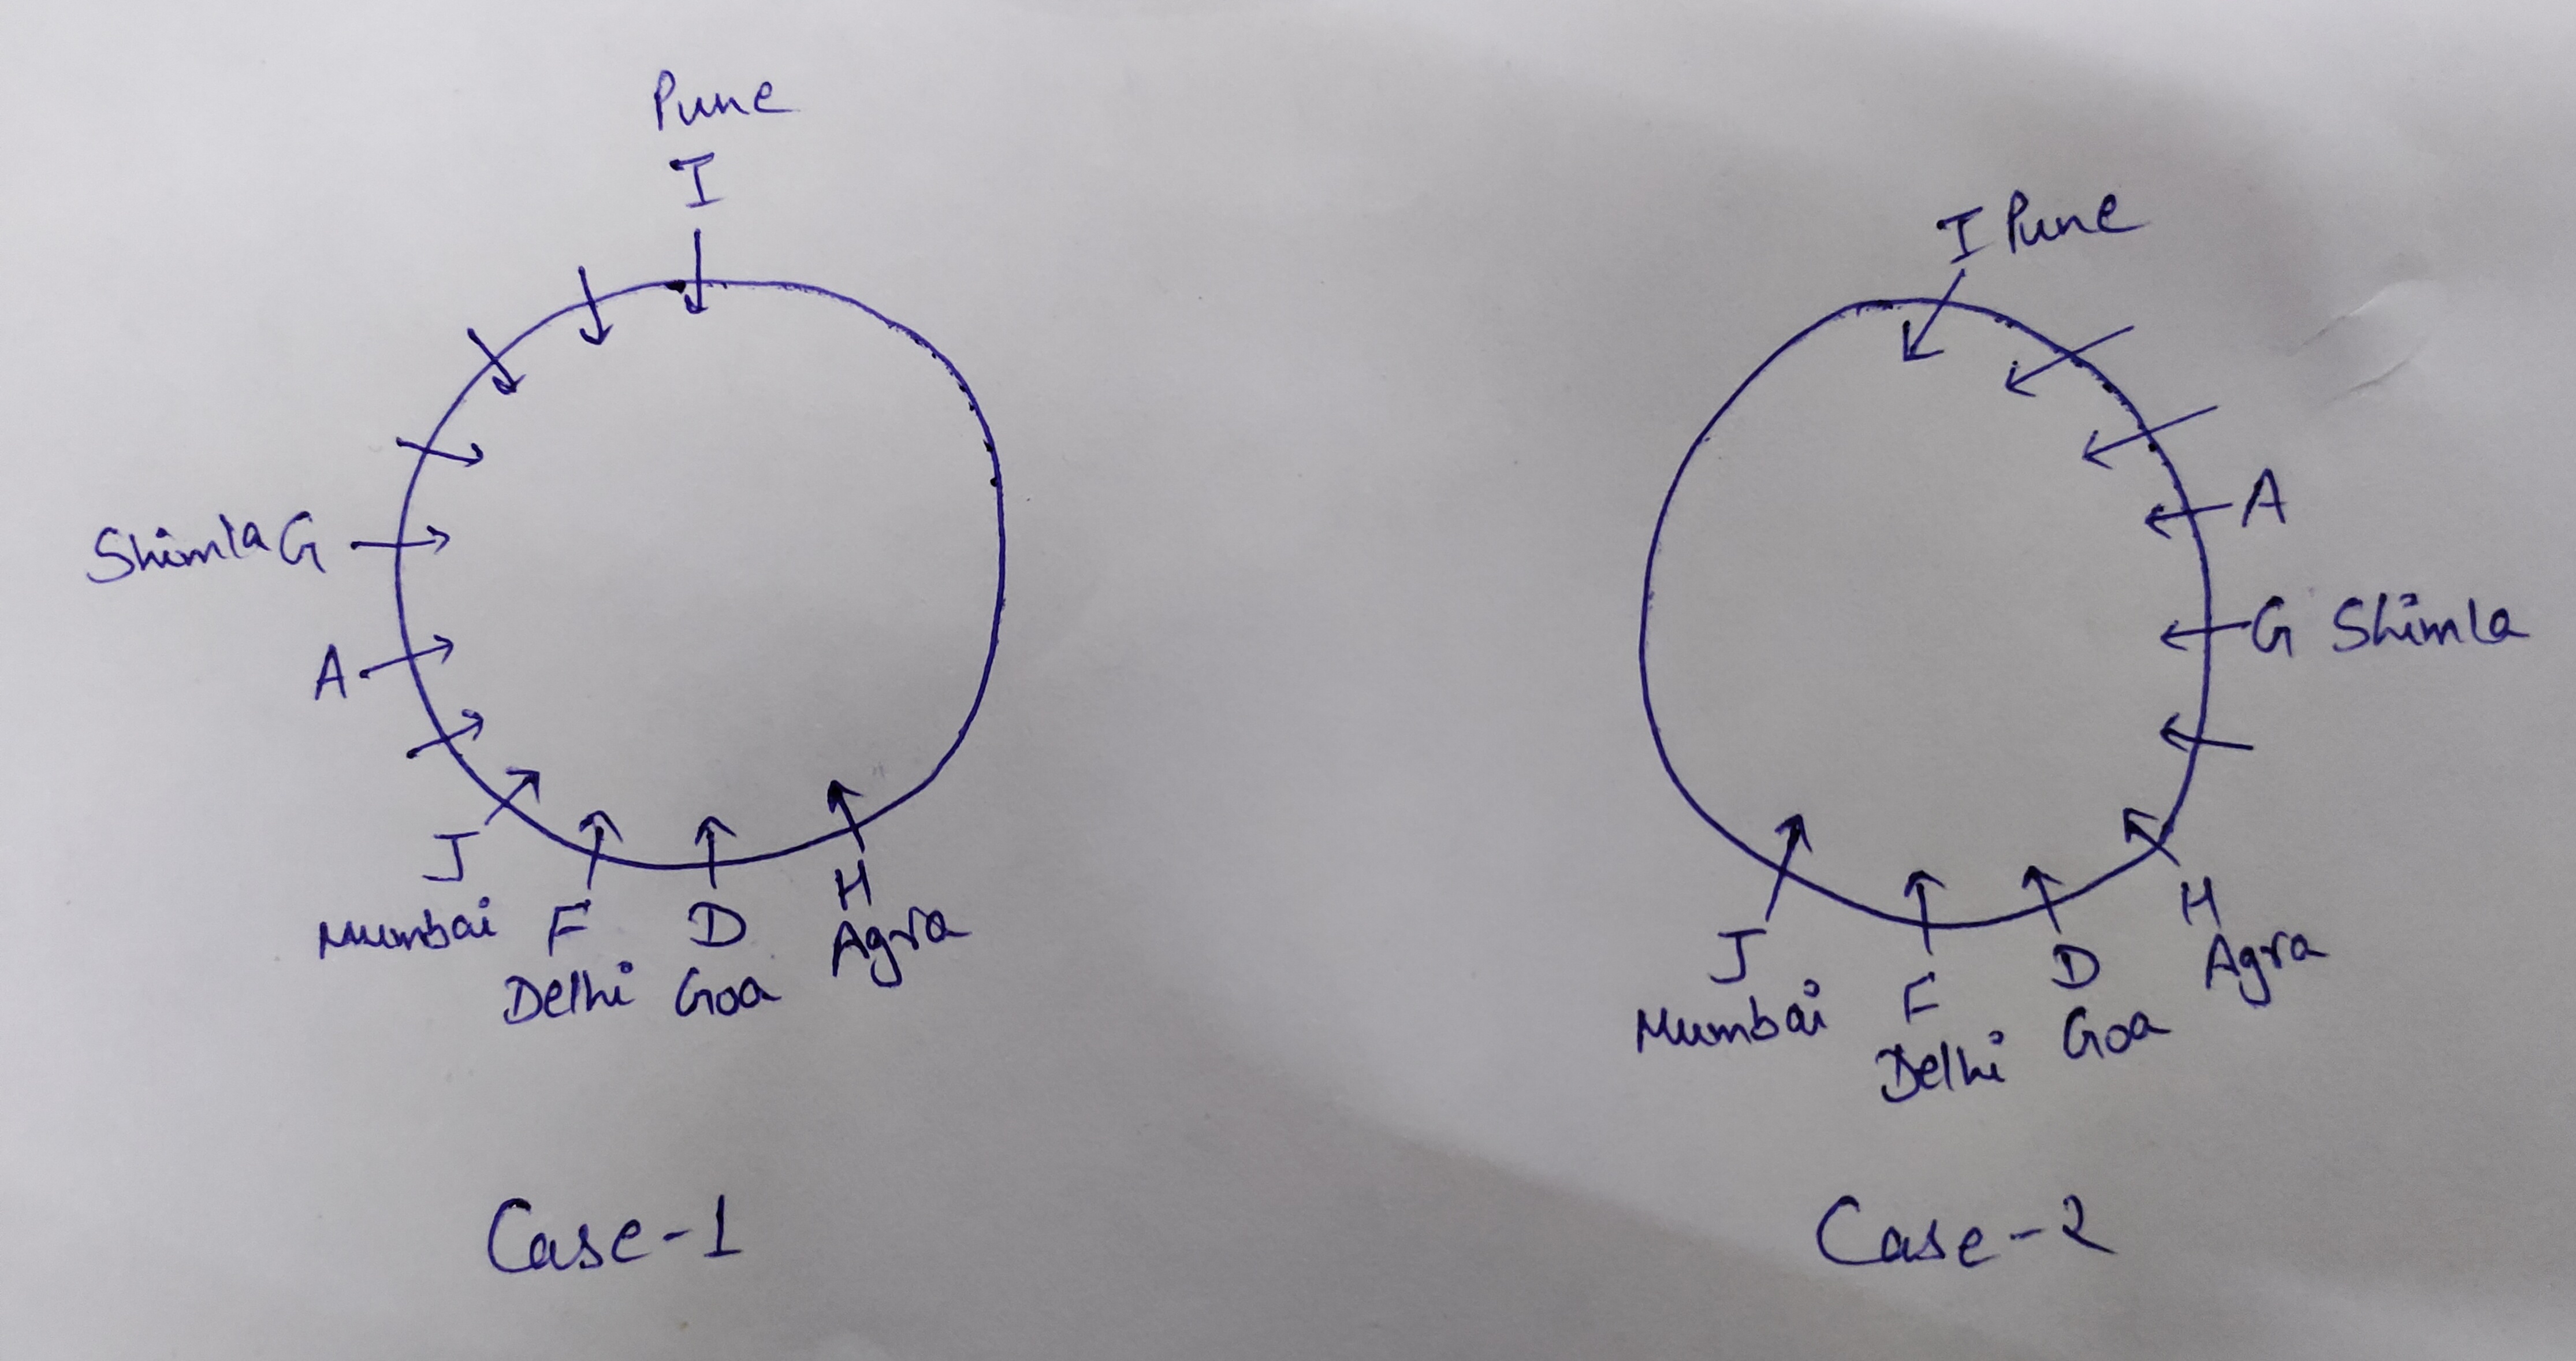 Pune
I
Shimla G
A
J
Mumbai
F
Delhi
D
Goa
H
Agra
Case-1
I Pune
A
G Shimla
J
Mumbai
F
Delhi
D
Goa
H
Agra
Case-2